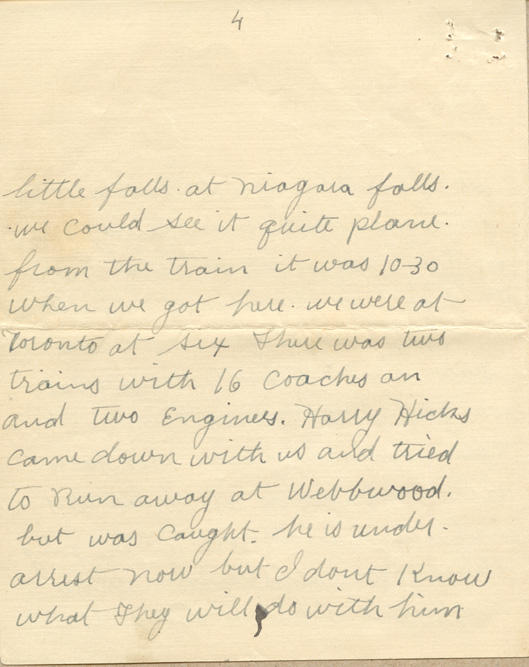 4
little falls. at niagara falls.
we could see it quite plane.
from the train it was 10-30
when we got here. we were at
Toronto at six There was two
trains with 16 coaches on
and two Engines. Harry Hicks
came down with us and tried
to Run away at Webbwood.
but was caught. he is under.
arrest now but I dont Know
what They will do with him